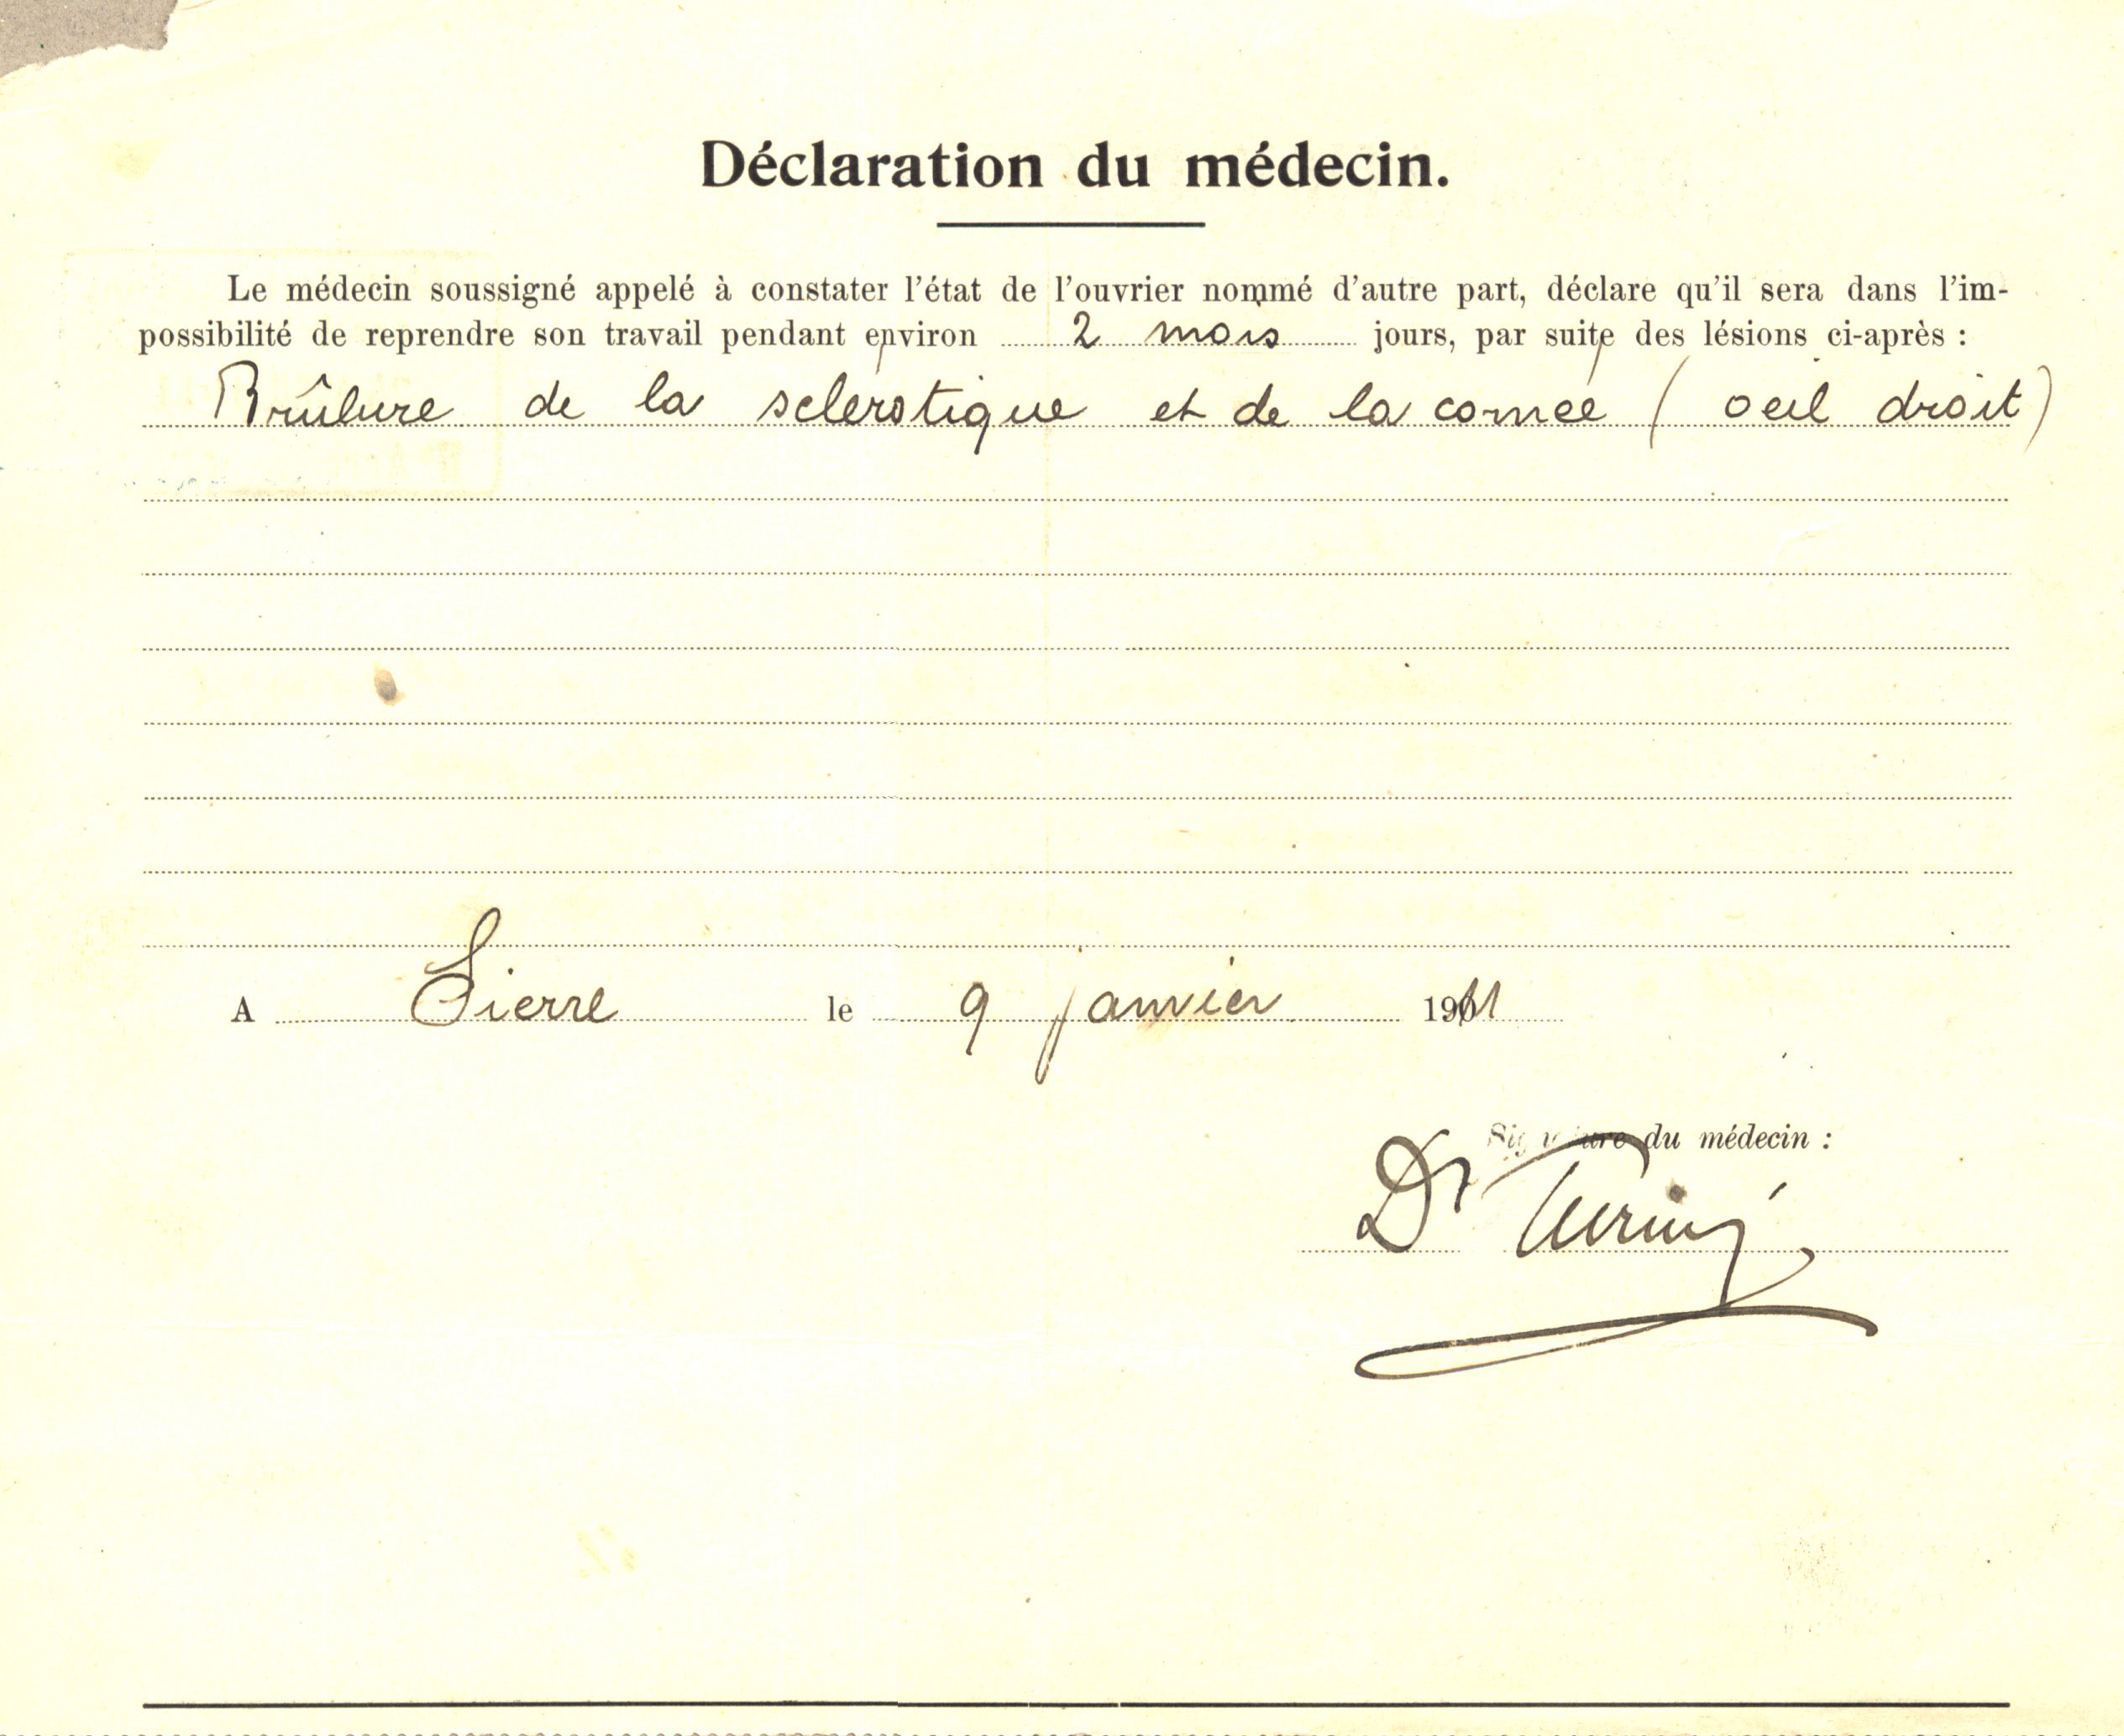 Déclaration du médecin.
Le médecin soussigné appelé à constater l'état de l'ouvrier nommé d'autre part, déclare qu'il sera dans l'im-
possibilité de reprendre son travail pendant environ 2 mois jours, par suite des lésions ci-après :
Brûlure de la sclerotique et de la cornée ( oeil droit)
A Sierre le 9 janvier 1911
Signature du médecin :
Dr